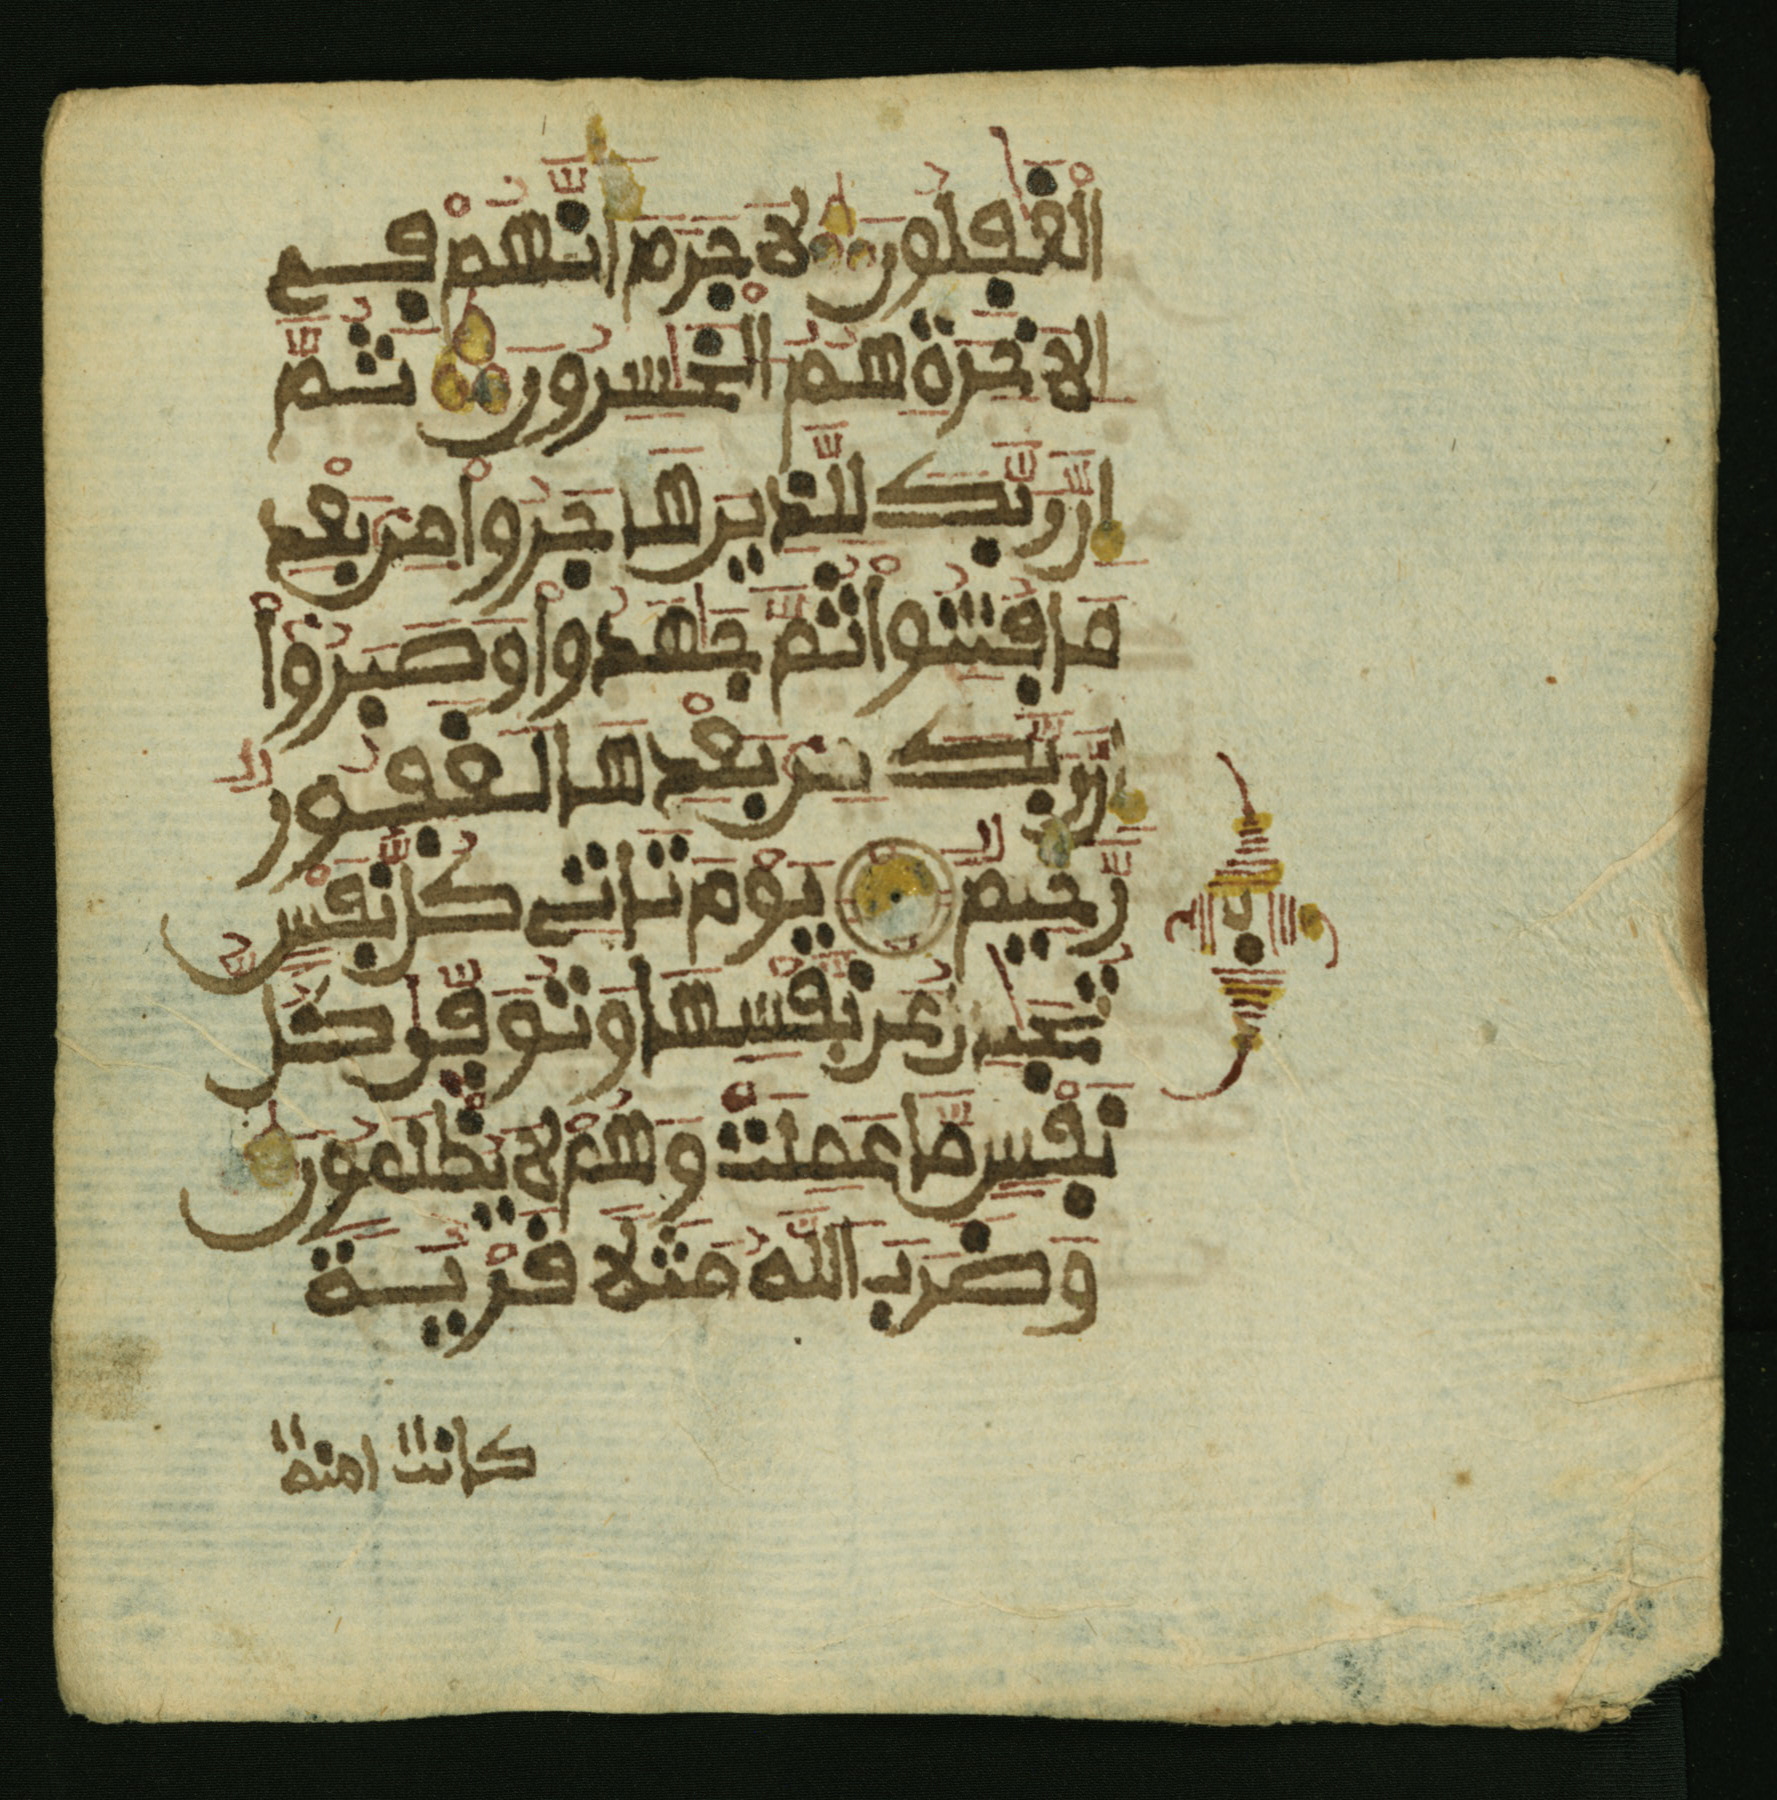 الْغَٰفِلُونَ لَا جَرَمَ أَنَّهُمْ فِي
الَاخِرَةِ هُمُ الْخَٰسِرُونَ ثُمَّ
إِنَّ رَبَّكَ لِلَّذِينَ هَاجَرُواْ مِنۢ بَعْدِ
مَا فُتِنُواْ ثُمَّ جَٰهَدُواْ وَصَبَرُوٓاْ
إِنَّ رَبَّكَ مِنۢ بَعْدِهَا لَغَفُورٌ
رَّحِيمٌ يَوْمَ تَاتِي كُلُّ نَفْسٍ
تُجَٰدِلُ عَن نَّفْسِهَا وَتُوَفَّىٰ كُلُّ
نَفْسٍ مَّا عَمِلَتْ وَهُمْ لَا يُظْلَمُونَ
وَضَرَبَ اللَّهُ مَثَلًا قَرْيَةً
كانت امنة